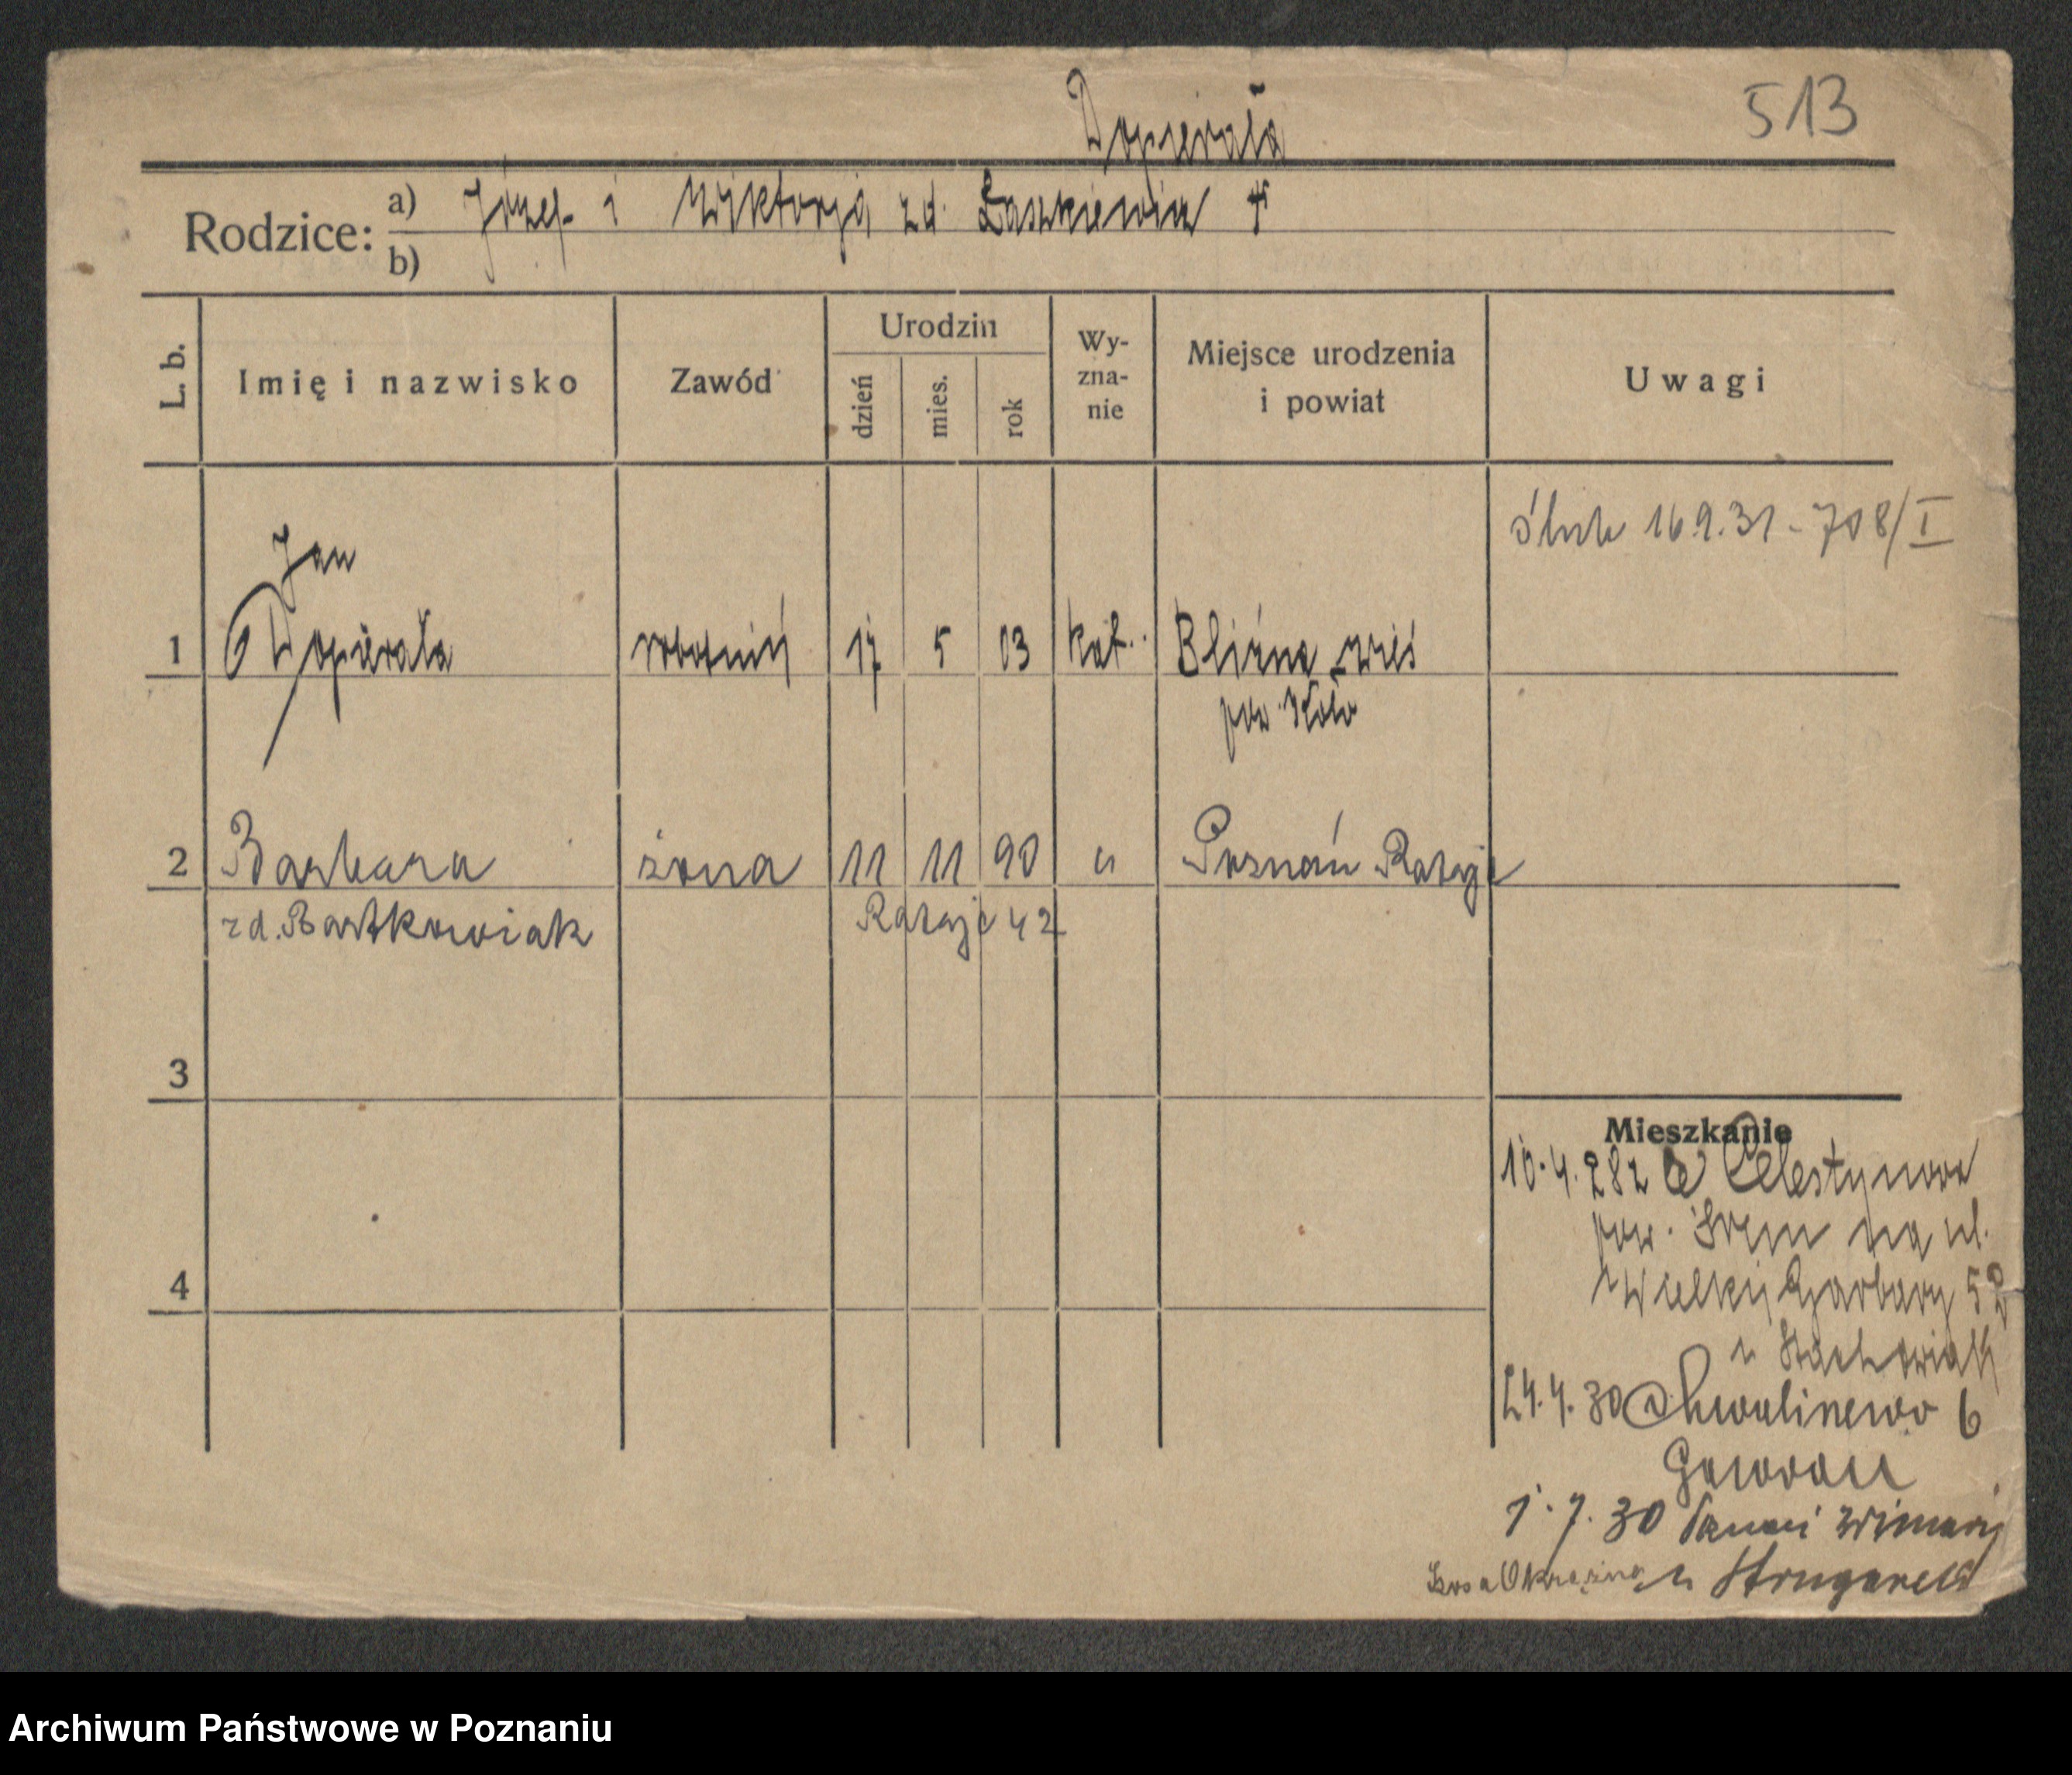 513
Dopierała
Rodzice: a) Józef i Wiktorja zd. Laszkiewicz †
b)
L. b. Imię i nazwisko Zawód Urodzin dzień mies. rok Wy-zna-nie Miejsce urodzenia i powiat Uwagi
ślub 16.9.31 - 708/I
Jan
1 Dopierała robotnik 17 5 03 kat. Bliźna wieś
pow. Koło
2 Barbara żona 11 11 90 " Poznań Rataje
zd. Bartkowiak Rataje 42
3
Mieszkanie
10.4.28 z Celestynowa
pow. Śrem na ul.
4 Wielkie Garbary 52
u Stachowiak
24.4.30 Chwalinewo 6
1.7.30
u Strugarek
Archiwum Państwowe w Poznaniu